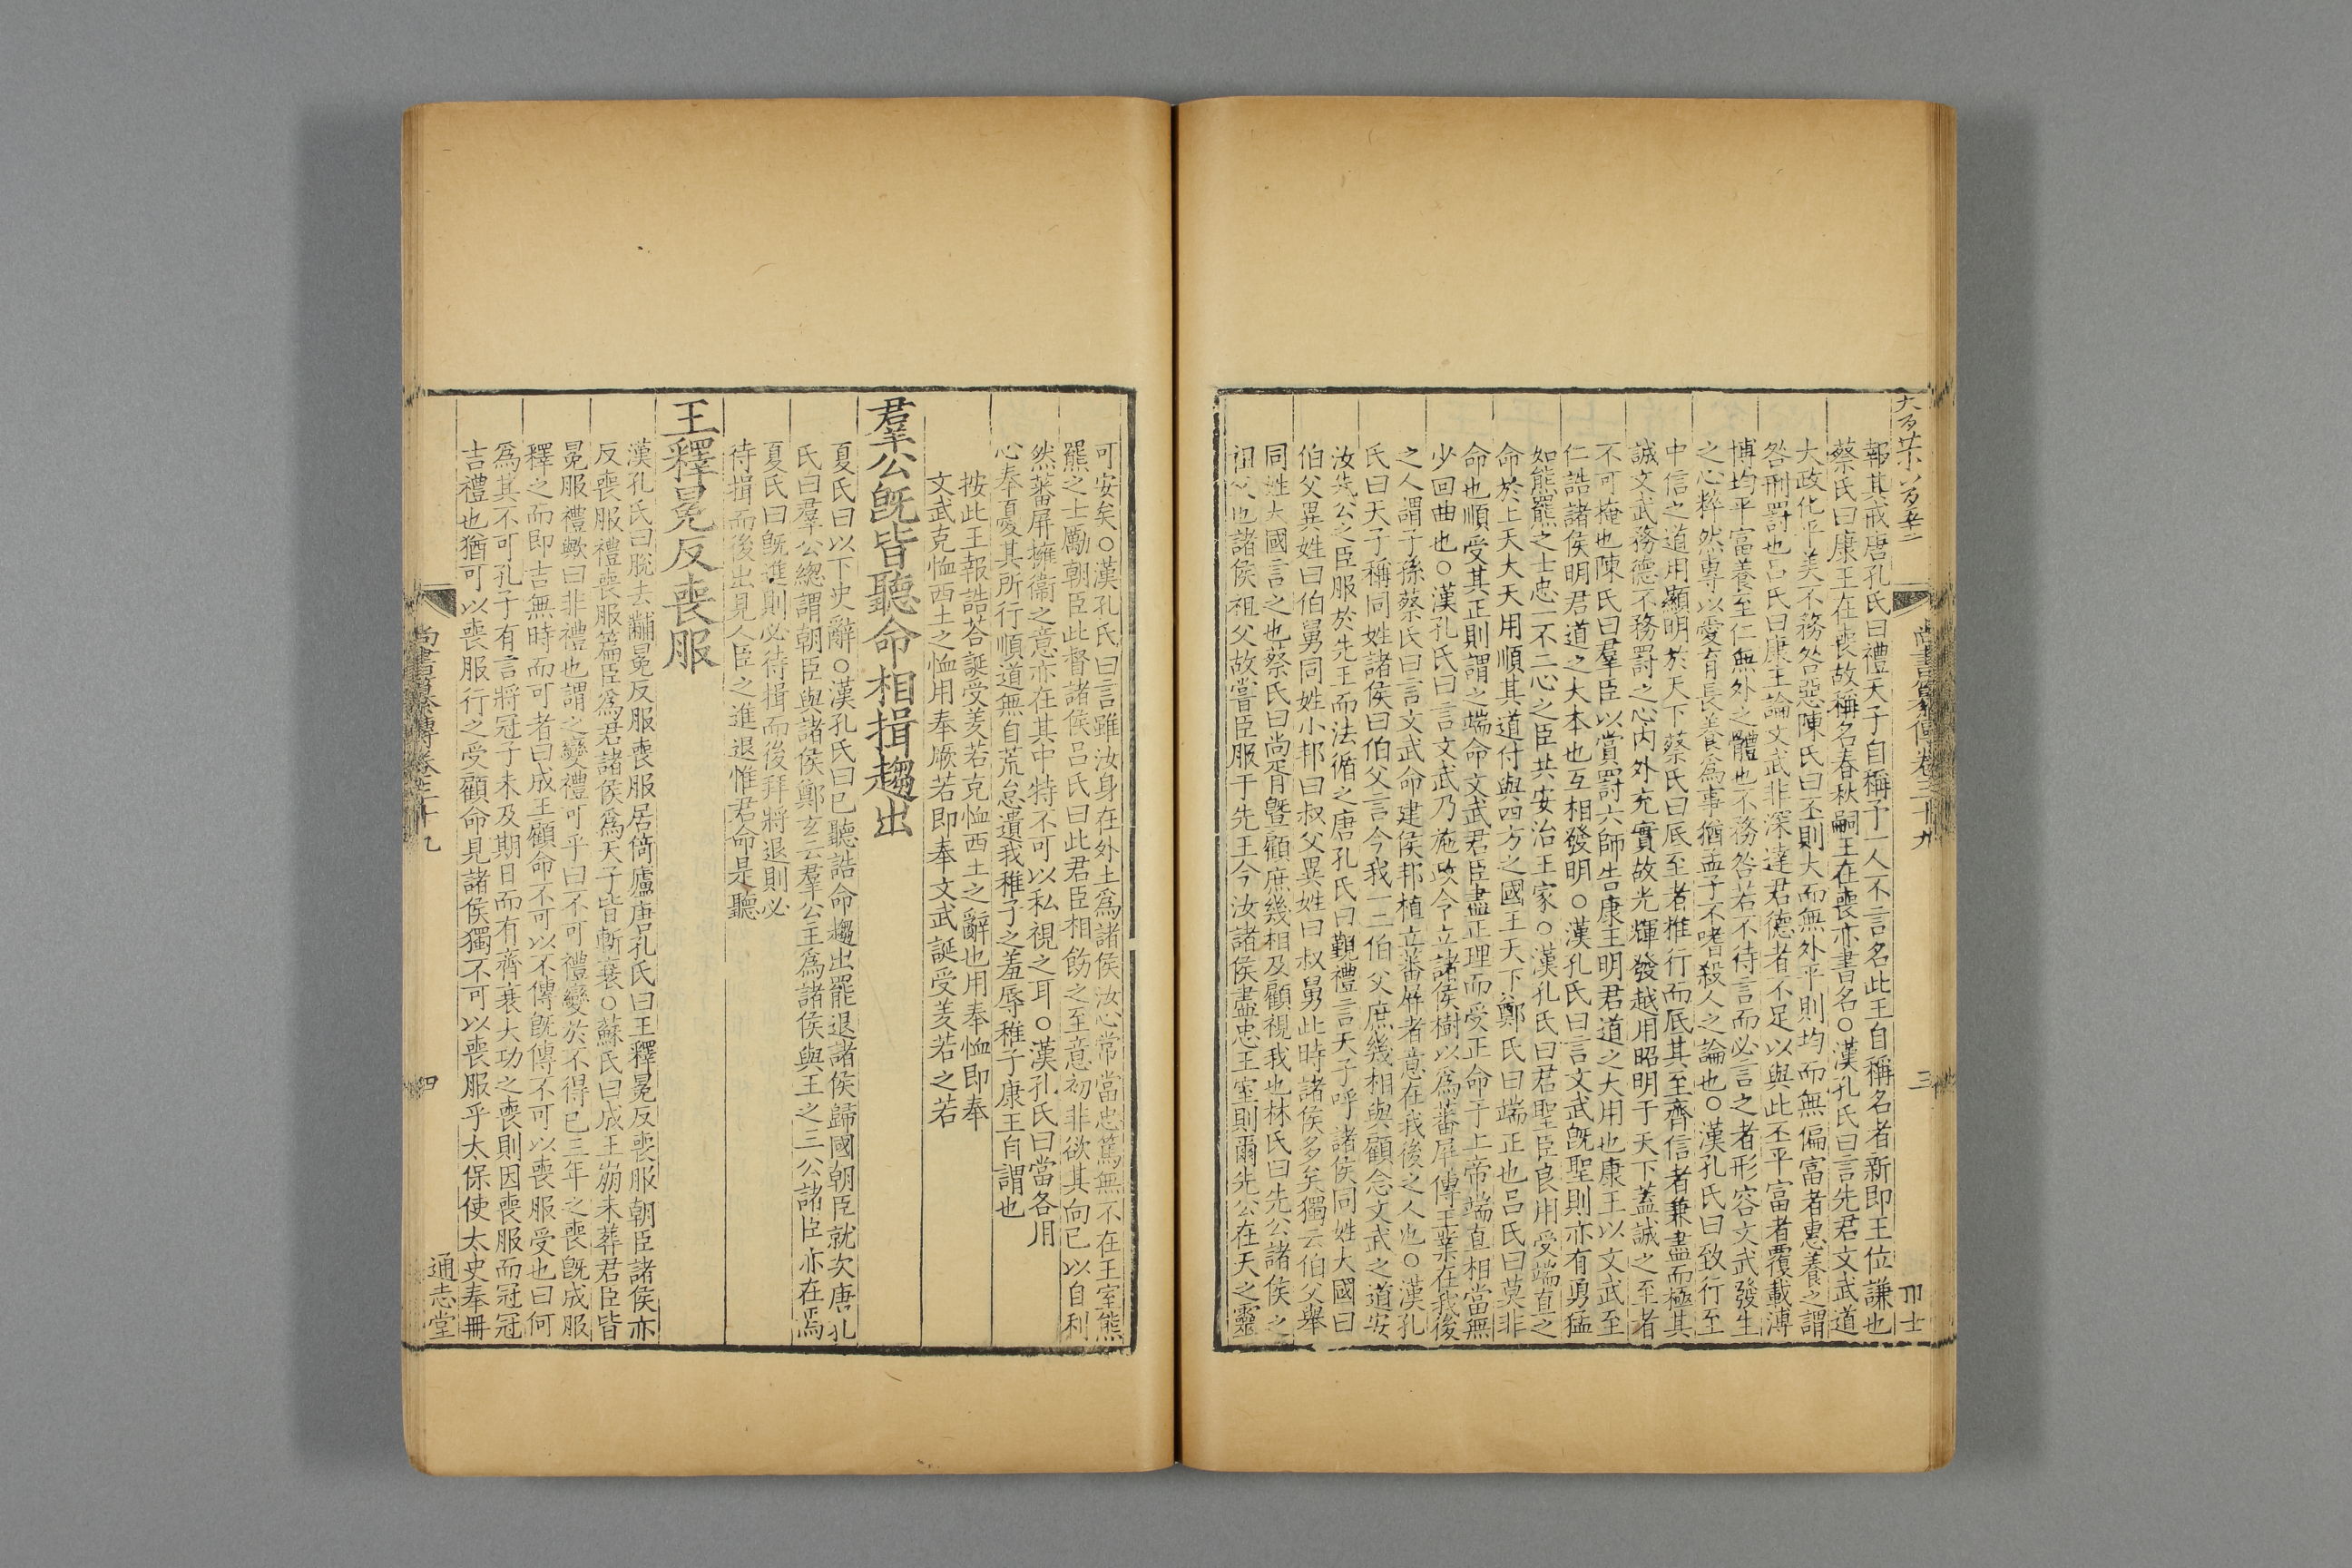 尚書纂傳卷三十九
三
報其戒唐孔氏曰禮天子自稱予一人不言名此王自稱名者新即王位謙也
蔡氏曰康王在喪故稱名春秋嗣王在喪亦書名○漢孔氏曰言先君文武道
大政化平美不務咎惡陳氏曰丕則大而無外平則均而無偏富者惠養之謂
咎刑罰也呂氏曰康王論文武非深達君德者不足以與此丕平富者覆載溥
博均平富養至仁無外之體也不務咎若不待言而必言之者形容文武發生
之心粹然專以愛育長養為事猶孟子不嗜殺人之論也○漢孔氏曰致行至
中信之道用顯明於天下蔡氏曰厎至者推行而厎其至齊信者兼盡而極其
誠文武務德不務罰之心內外充實故光輝發越用昭明于天下蓋誠之至者
不可掩也陳氏曰羣臣以賞罰六師告康王明君道之大用也康王以文武至
仁誥諸侯明君道之大本也互相發明○漢孔氏曰言文武既聖則亦有勇猛
如熊羆之士忠一不二心之臣共安治王家○漢孔氏曰君聖臣良用受端直之
命於上天大天用順其道付與四方之國王天下鄭氏曰端正也呂氏曰莫非
命也順受其正則謂之端命文武君臣盡正理而受正命于上帝端直相當無
少回曲也○漢孔氏曰言文武乃施政令立諸侯樹以為蕃屏傳王業在我後
之人謂子孫蔡氏曰言文武命建侯邦植立蕃屏者意在我後之人也○漢孔
氏曰天子稱同姓諸侯曰伯父言今我一二伯父庶幾相與顧念文武之道安
汝先公之臣服於先王而法循之唐孔氏曰覲禮言天子呼諸侯同姓大國曰
伯父異姓曰伯舅同姓小邦曰叔父異姓曰叔舅此時諸侯多矣獨云伯父舉
同姓大國言之也蔡氏曰尚胥曁顧庶幾相及顧視我也林氏曰先公諸侯之
祖父也諸侯祖父故嘗臣服于先王今汝諸侯盡忠王室則爾先公在天之靈
可安矣○漢孔氏曰言雖汝身在外土為諸侯汝心常當忠篤無不在王室熊
羆之士勵朝臣此督諸侯呂氏曰此君臣相飭之至意初非欲其向已以自利
然蕃屏擁衞之意亦在其中特不可以私視之耳○漢孔氏曰當各用
心奉憂其所行順道無自荒怠遺我稚子之羞辱稚子康王自謂也
按此王報誥荅誕受羑若克恤西土之辭也用奉恤即奉
文武克恤西土之恤用奉厥若即奉文武誕受羑若之若
羣公旣皆聽命相揖趨出
夏氏曰以下史辭○漢孔氏曰已聽誥命趨出罷退諸侯歸國朝臣就次唐孔
氏曰羣公緫謂朝臣與諸侯鄭玄云羣公主為諸侯與王之三公諸臣亦在焉
夏氏曰旣進則必待揖而後拜將退則必
待揖而後出見人臣之進退惟君命是聽
王釋冕反喪服
漢孔氏曰脫去黼冕反服喪服居倚廬唐孔氏曰王釋冕反喪服朝臣諸侯亦
反喪服禮喪服篇臣為君諸侯為天子皆斬衰○蘇氏曰成王崩未葬君臣皆
冕服禮歟曰非禮也謂之變禮可乎曰不可禮變於不得已三年之喪旣成服
釋之而即吉無時而可者曰成王顧命不可以不傳旣傳不可以喪服受也曰何
為其不可孔子有言將冠子未及期日而有齊衰大功之喪則因喪服而冠冠
吉禮也猶可以喪服行之受顧命見諸侯獨不可以喪服乎太保使太史奉冊
尚書纂傳卷三十九
四
通志堂